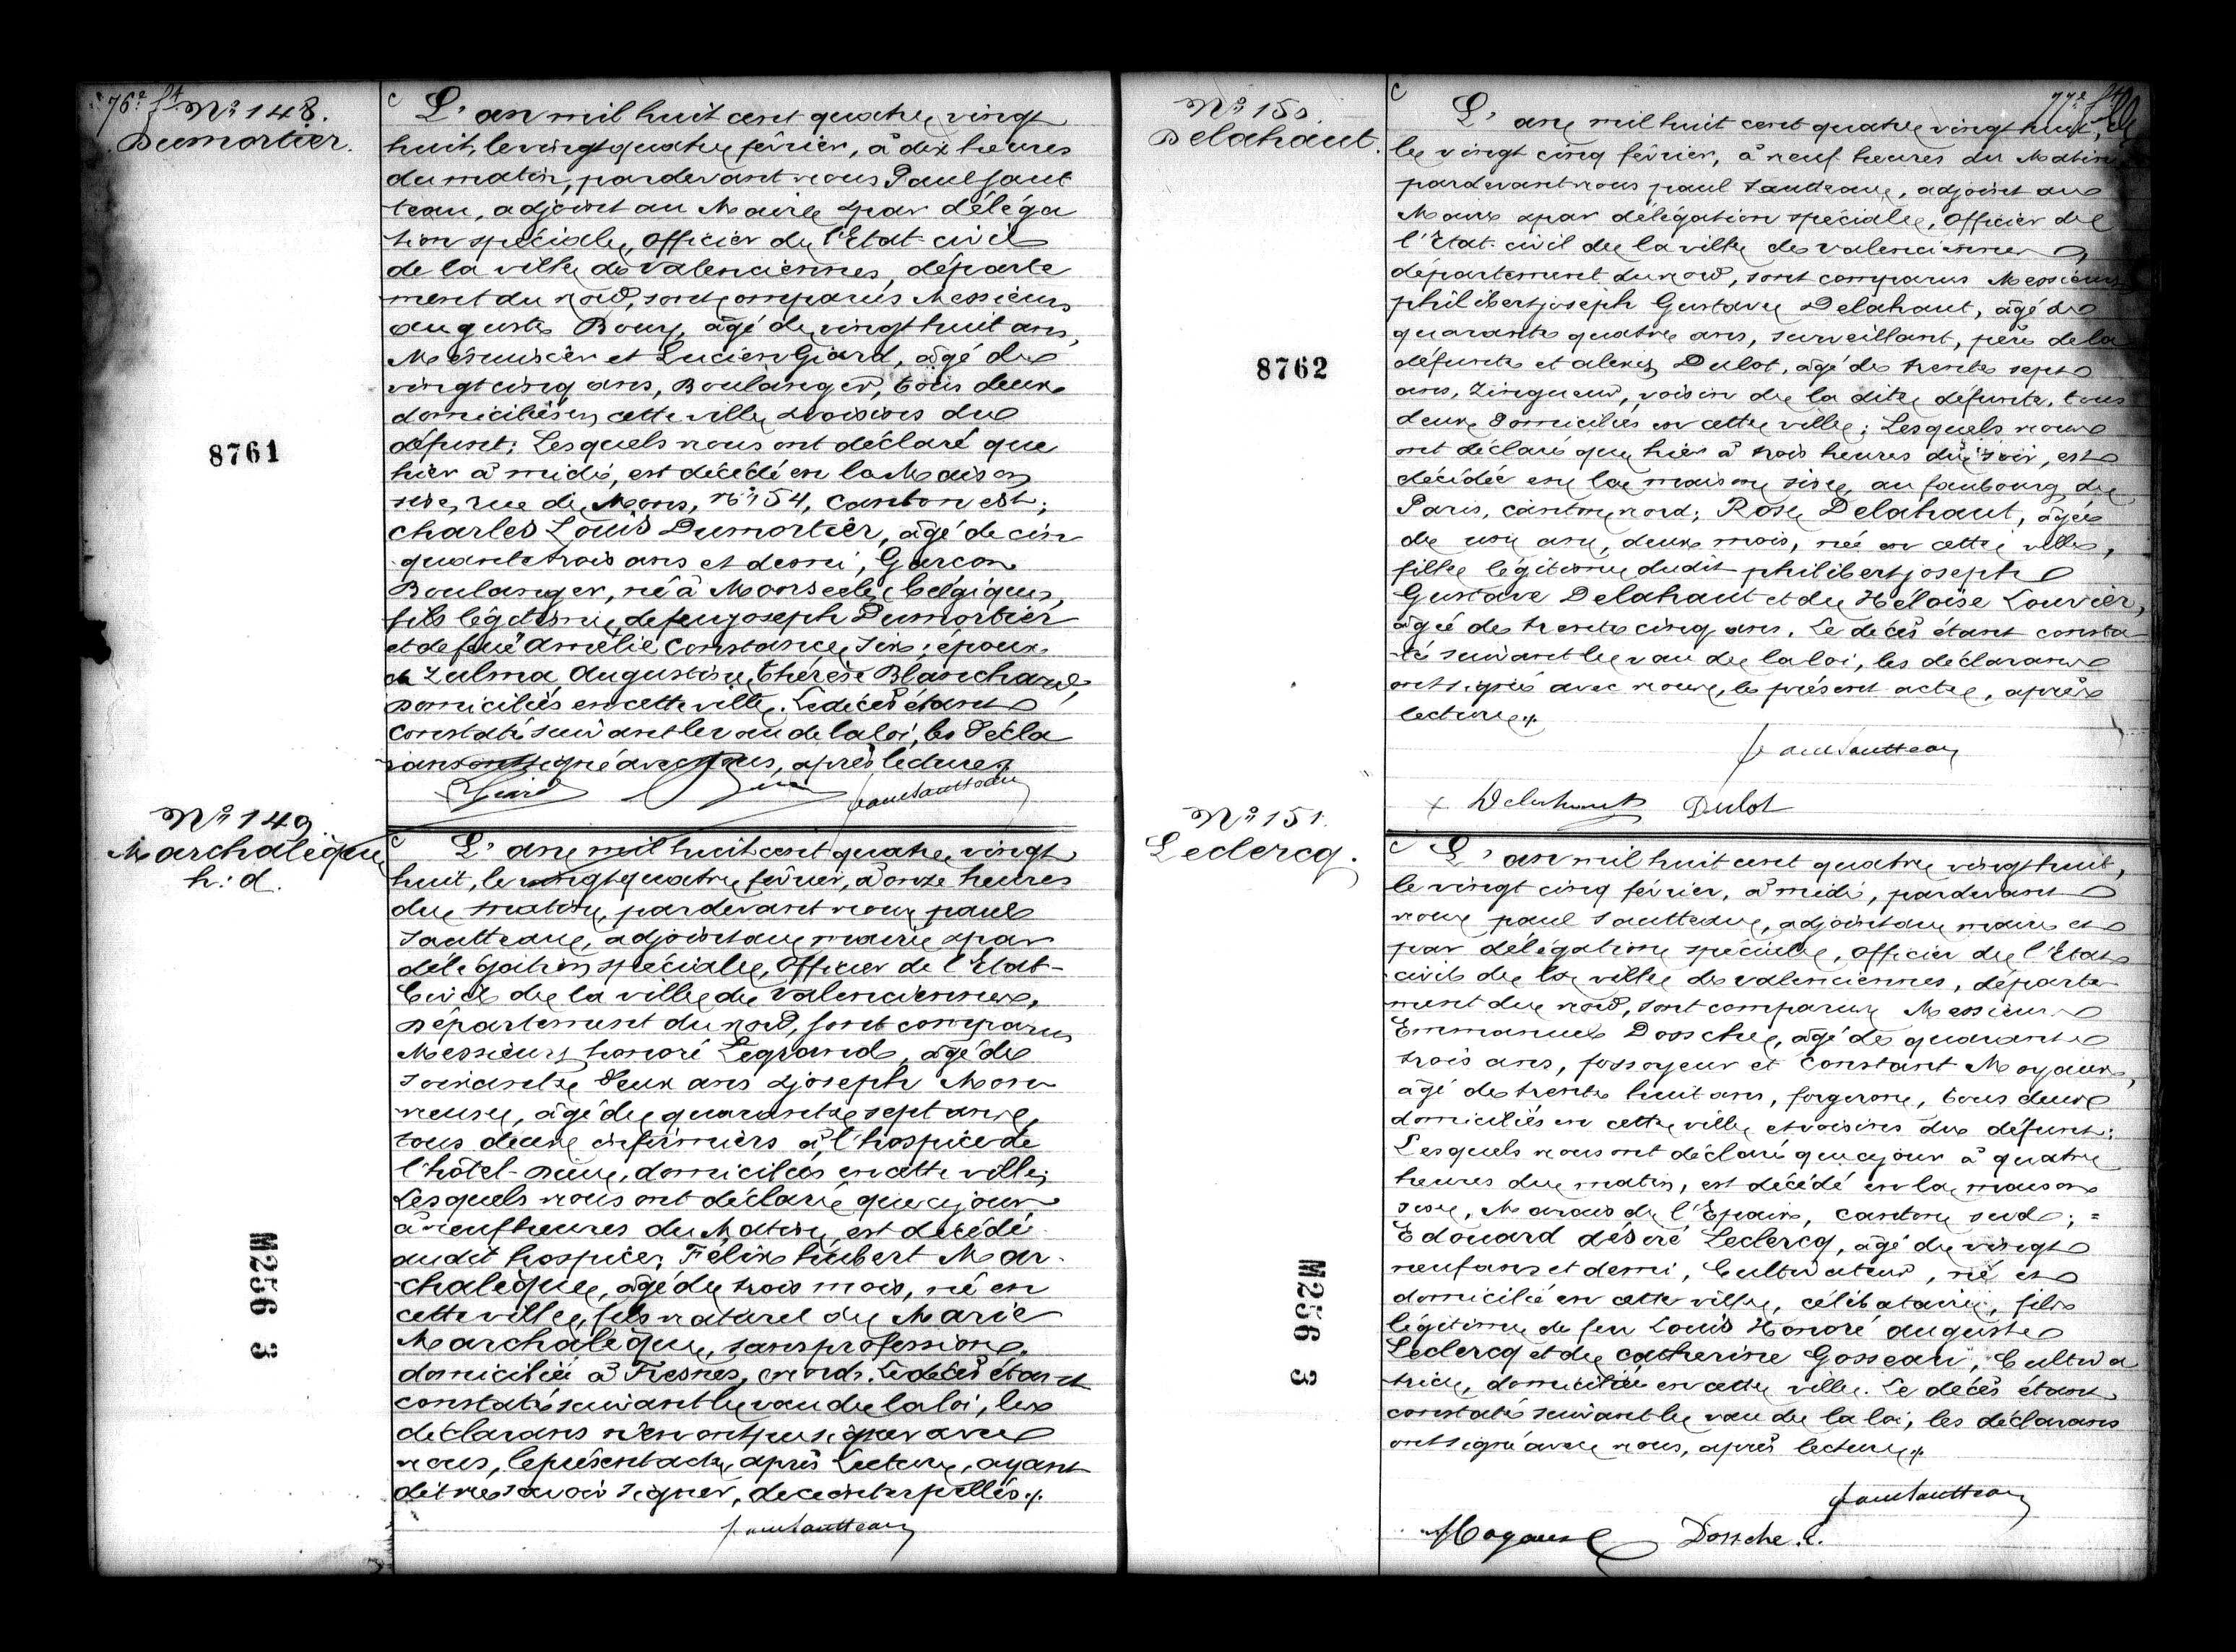 76e ft
No 148.
Dumortier.
L'an mil huit cent quatre vingt
huit, le vingt quatre février, à dix heures
du matin, pardevant nous Paul Saut
teau, adjoint au Maire & par déléga
tion spéciale, Officier de l'Etat-civil
de la ville de Valenciennes, départe
ment du nord, sont comparus Messieurs
auguste Boury, âgé de vingt huit ans,
Menuisier et Lucien Giard, âgé de
vingt cinq ans, Boulanger, tous deux
domiciliés en cette ville & voisins du
défunt; Lesquels nous ont déclaré que
hier à midi, est décédé en la Maison
sise, rue de Mons, no 54, canton est;
Charles Louis Dumortier, âgé de cin
quante trois ans et demi, Garçon
Boulanger, né à Moorseele, belgique,
fils légitime de feu joseph Dumortier
et de feue Amélie Constance Six; époux
de Zulma Augustine thérèse Blanchard,
domiciliés en cette ville. Le décès étant
constaté suivant le vœu de la loi, les décla
rans ont signé avec Nous, après lecture.
Giard
Paul Sautteau
8761
No 149
Marchalèque
h: d.
L'an mil huit cent quatre vingt
huit, le vingt quatre février, à onze heures
du matin, pardevant nous paul
Sautteau, adjoint au maire & par
délégation spéciale, Officier de l'Etat-
Civil de la ville de Valenciennes,
département du nord, sont comparus
Messieurs honoré Legrand, âgé de
soixante deux ans & joseph Mon
neuse, âgé de quarante sept ans,
tous deux infirmiers à l'hospice de
l'hôtel-Dieu, domiciliés en cette ville;
Lesquels nous ont déclaré que ce jour
à neuf heures du Matin, est décédé
audit hospice; Félix hubert Mar-
chalèque, âgé de trois mois, né en
cette ville, fils naturel de Marie
Marchalèque, sans profession,
domiciliée à Fresnes, (nord). Le décès étant
constaté suivant le vœu de la loi, les
déclarans n'en ont pu signer avec
nous, le présent acte, après Lecture, ayant
dit ne savoir signer, de ce interpellés./.
Paul Sautteau
M256 3
77e ft
No 150
Delahaut.
L'an mil huit cent quatre vingt huit,
le vingt cinq février, à neuf heures du Matin
pardevant nous paul Sautteau, adjoint au
Maire & par délégation spéciale, Officier de
l'Etat-civil de la ville de Valenciennes
département du nord, sont comparus Messieurs
philibert joseph Gustave Delahaut, âgé de
quarante quatre ans, surveillant, père de la
défunte et alexis Dulot, âgé de trente sept
ans, Zingueur, voisin de la dite défunte, tous
deux domiciliés en cette ville; Lesquels nous
ont déclaré que hier à trois heures du soir, est
décédée en la maison sise, au faubourg de
Paris, canton nord; Rose Delahaut, âgée
de un an, deux mois, née en cette ville,
fille légitime dudit philibert joseph
Gustave Delahaut et de Héloïse Louvier,
âgée de trente cinq ans. Le décès étant consta
té suivant le vœu de la loi, les déclarans
ont signé avec nous, le présent acte, après
lecture./.
Paul Sautteau
x Delahaut Dulot
8762
No 151.
Leclercq.
L'an mil huit cent quatre vingt huit,
le vingt cinq février, à midi, pardevant
nous paul Sautteau, adjoint au maire et
par délégation spéciale, Officier de l'Etat
civil de la ville de Valenciennes, départe
ment du nord, sont comparus Messieurs
Emmanuel Dossche, âgé de quarante
trois ans, fossoyeur et Constant Moyaux,
âgé de trente huit ans, forgeron, tous deux
domiciliés en cette ville et voisins du défunt:
Lesquels nous ont déclaré que ce jour à quatre
heures du matin, est décédé en la maison
sise, Marais de l'Epaix, canton sud; =
Edouard désiré Leclercq, âgé de vingt
neuf ans et demi, Cultivateur, né et
domicilié en cette ville, célibataire, fils
légitime de feu Louis Honoré auguste
Leclercq et de Catherine Gosseau, Cultiva
trice, domiciliée en cette ville. Le décès étant
constaté suivant le vœu de la loi, les déclarans
ont signé avec nous, après lecture./.
Paul Sautteau
Moyaux Dossche.E.
M256 3